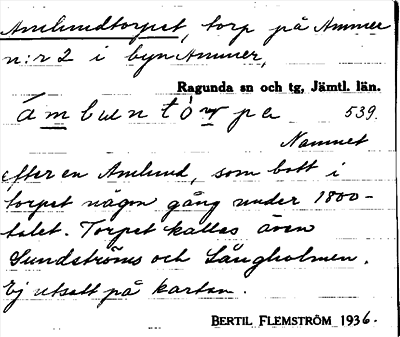 Amlundtorpet, torp på Ammer
n:r 2 i byn Ammer,
Ragunda sn och tg, Jämtl. län.
ámbuentórpa 539.
Namnet
efter en Amlund, som bott i
torpet någon gång under 1800-
talet. Torpet kallas även
Sundströms och Långholmen.
Ej utsatt på kartan.
BERTIL FLEMSTRÖM 1936.